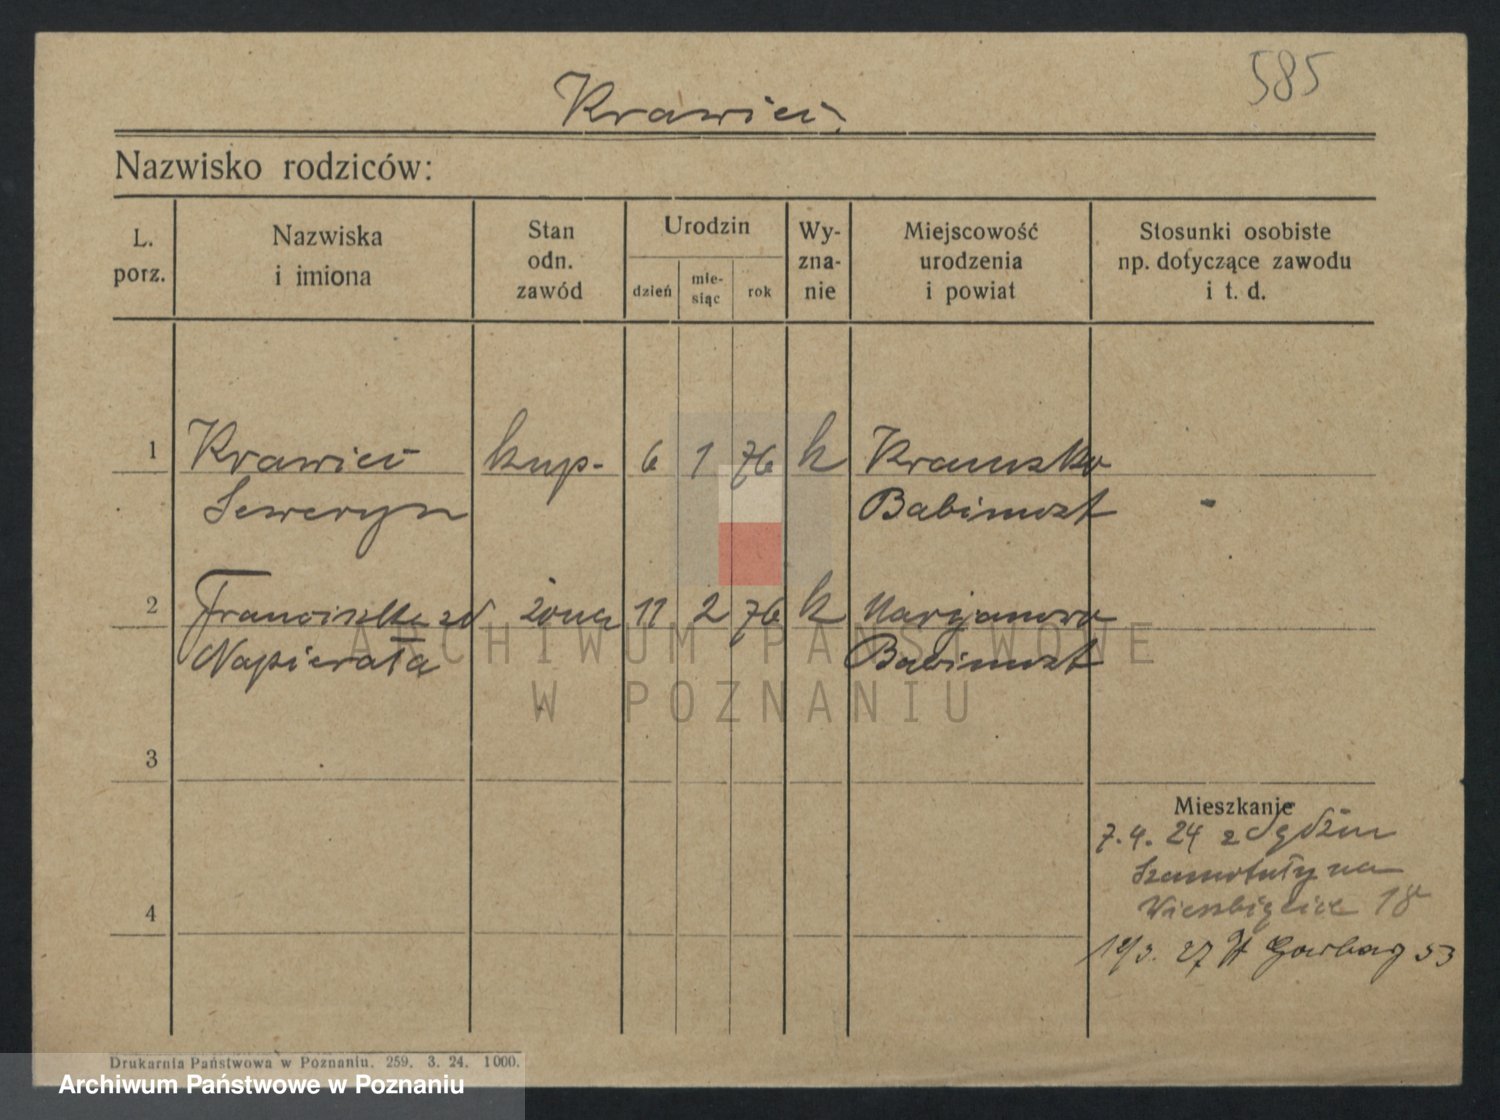 585
Krawiec
Nazwisko rodziców:
L. porz.
Nazwiska i imiona
Stan odn. zawód
Urodzin
dzień
mie-siąc
rok
Wy-zna-nie
Miejscowość urodzenia i powiat
Stosunki osobiste np. dotyczące zawodu i t. d.
1 Krawiec kup. 6 1 76 k Kramsko
Seweryn Babimost -
2 Franciszka zd żona 11 2 76 k
Napierała Babimost
ARCHIWUM PAŃSTWOWE
W POZNANIU
3
Mieszkanie
7.4.24 z
Szamotuły na
4 Wierzbięcice 18
27 Garbary 53
Drukarnia Państwowa w Poznaniu. 259. 3. 24. 1000.
Archiwum Państwowe w Poznaniu